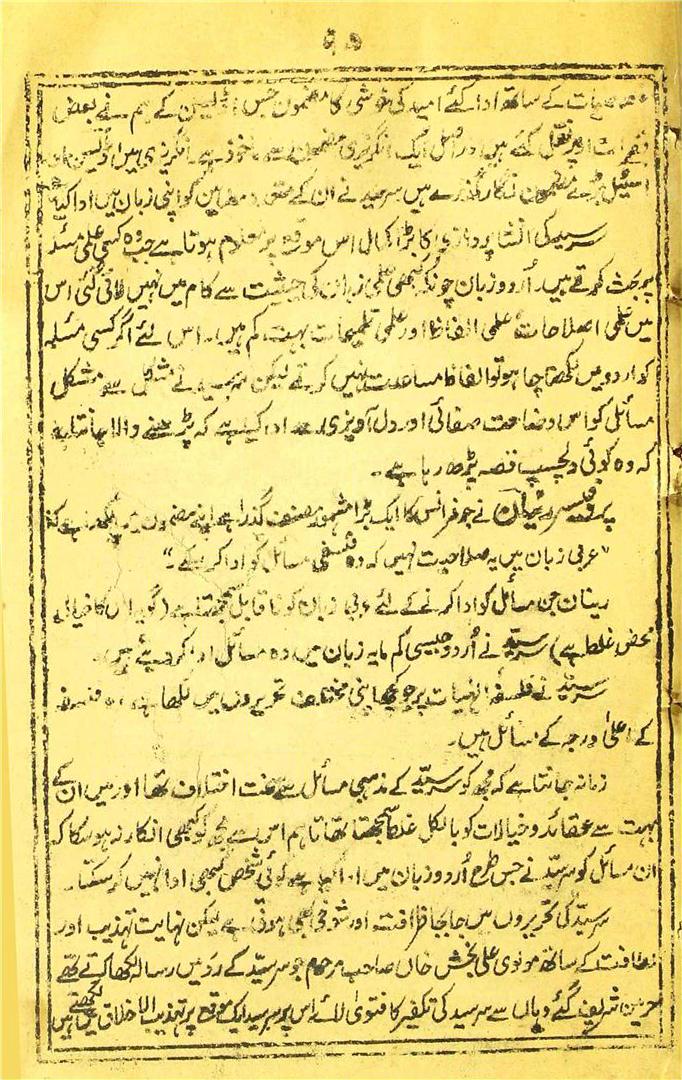 ۵۷
خصوصیات کے ساتھ ادا کئے امید کی خوشی کا مضمون جس کے ہم نے بعض
فقرات اوپر نقل کئے ہیں دراصل ایک انگریزی مضمون سے ماخوذ ہے۔ انگریزی میں اڈیسن اور
اسٹیل بڑے مضمون نگار گذرے ہیں سرسید نے ان کے متعدد مضامین کو اپنی زبان میں ادا کیا
سرسید کی انشا پردازی کا بڑا کمال اس موقع پر معلوم ہوتا ہے جب وہ کسی علمی مسئلہ
پر بحث کرتے ہیں۔ اُردو زبان چونکہ کبھی علمی زبان کی حیثیت سے کام میں نہیں لائی گئی اس
میں علمی اصلاحات علمی الفاظ اور علمی تلمیحات بہت کم ہیں۔ اس لئے اگر کسی مسئلہ
کو اردو میں لکھنا چاہو تو الفاظ مساعدت نہیں کرتے لیکن سرسید نے مشکل سے مشکل
مسائل کو اس وضاحت صفائی اور دل آویزی سے ادا کیا ہے کہ پڑھنے والا جانتا ہے
کہ وہ کوئی دلچسپ قصہ پڑھ رہا ہے۔
پروفیسر رینان نے جو فرانس کا ایک بڑا مشہور مصنف گذرا ہے اپنے مضمون میں لکھا ہے کہ
“عربی زبان میں یہ صلاحیت نہیں کہ وہ فلسفی مسائل کو ادا کر سکے۔”
رینان جن مسائل کو ادا کرنے کے لئے عربی زبان کو نا قابل سمجھتا ہے (گو اس کا خیال
محض غلط ہے) سرسیدؒ نے اُردو جیسی کم مایہ زبان میں وہ مسائل ادا کر دیئے ہیں۔
سرسیدؒ نے فلسفۂ الٰہیات پر جو کچھ اپنی مختلف تحریروں میں لکھا ہے وہ فلسفہ
کے اعلیٰ درجہ کے مسائل ہیں۔
زمانہ جانتا ہے کہ مجھ کو سرسیدؒ کے مذہبی مسائل سے سخت اختلاف تھا اور میں ان کے
بہت سے عقائد و خیالات کو بالکل غلط سمجھتا تھا تاہم اس سے مجھ کو کبھی انکار نہ ہو سکا کہ
ان مسائل کو سرسیدؒ نے جس طرح اُردو زبان میں ادا کیا ہے کوئی شخص کبھی ادا نہیں کر سکتا۔
سرسیدؒ کی تحریروں میں جابجا ظرافت اور شوخی بھی ہوتی ہے لیکن نہایت تہذیب اور
لطافت کے ساتھ مولوی علی بخش خاں صاحب مرحوم جو سرسیدؒ کے رد میں رسالہ لکھا کرتے تھے
حرمین شریفین گئے وہاں سے سرسید کی تکفیر کا فتویٰ لائے اس پر سرسید ایک موقع پر تہذیب الاخلاق میں لکھتے ہیں